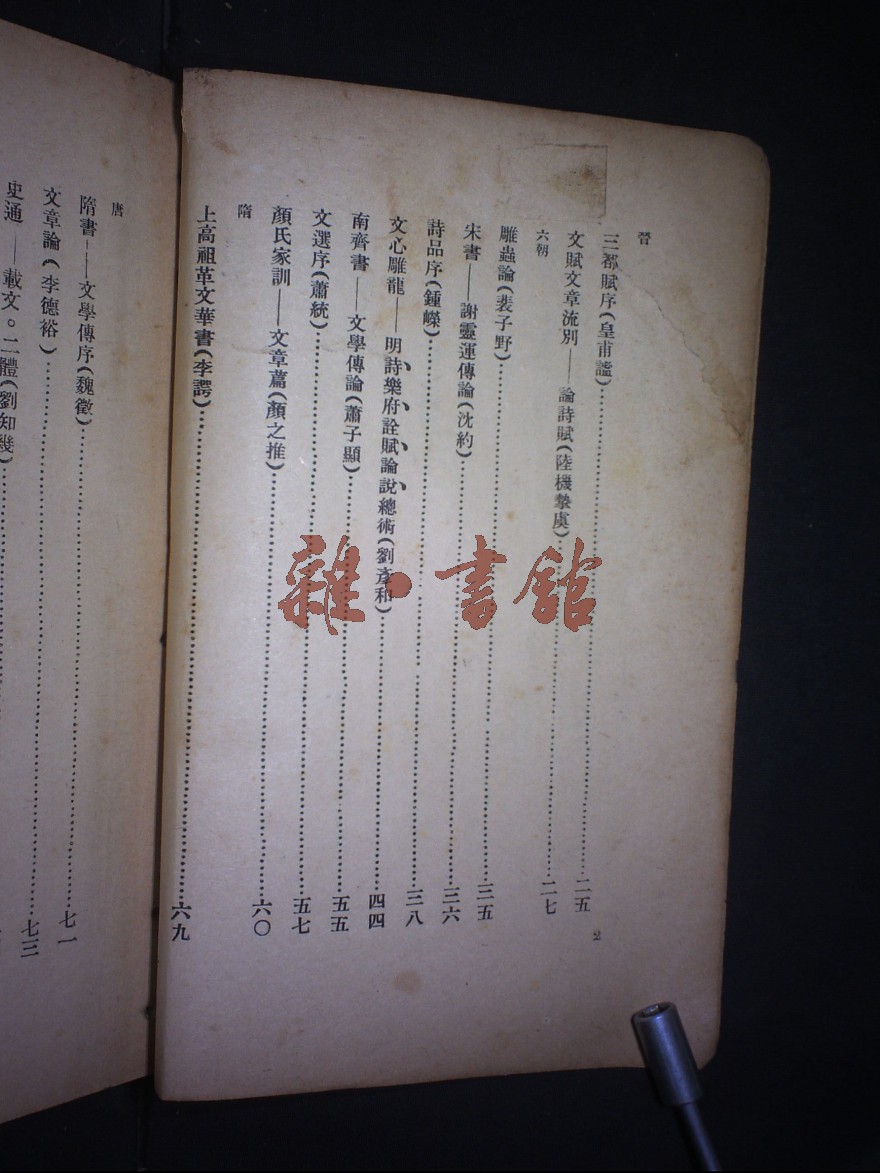 晉
三都賦序(皇甫謐)……二五
文賦文章流別——論詩賦(陸機摯虞)……二七
六朝
雕蟲論(裴子野)……三五
宋書——謝靈運傳論(沈約)……三六
詩品序(鍾嶸)……三八
文心雕龍——明詩、樂府、詮賦、論說、總術(劉彥和)……四四
南齊書——文學傳論(蕭子顯)……五五
文選序(蕭統)……五七
顏氏家訓——文章篇(顏之推)……六〇
隋
上高祖革文華書(李諤)……六九
2
唐
隋書——文學傳序(魏徵)……七一
文章論(李德裕)……七三
史通——載文。二體(劉知幾)……
雜·書館